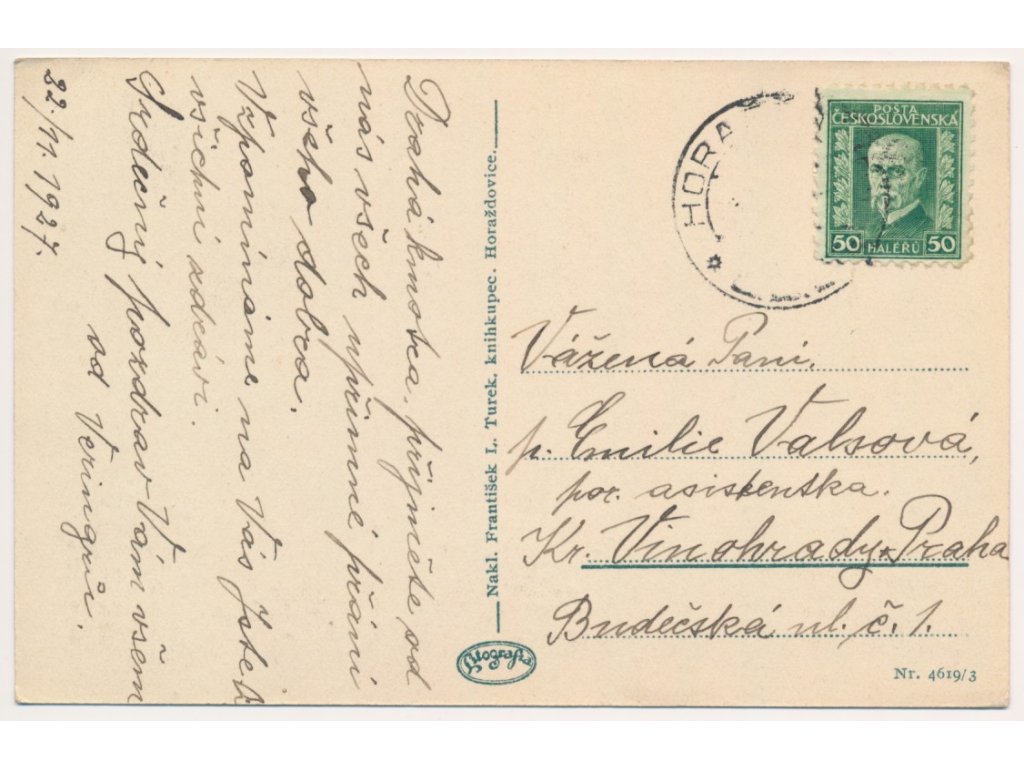 Drahá kmotra, přijměte od
nás všech upřímné přání
všeho dobra.
Vzpomínáme na Vás. Jste-li
všichni zdrávi.
Srdečný pozdrav Vám všem
od Veringrů.
22./11. 1927.
Nakl. František L. Turek, knihkupec. Horažďovice.
HORA
POSTA
ČESKOSLOVENSKA
50 HALÉRŮ 50
Vážená Paní,
p. Emilie Valsová,
por. asistentka.
Kr. Vinohrady-Praha
Budečská ul. č. 1.
Nr. 4619/3